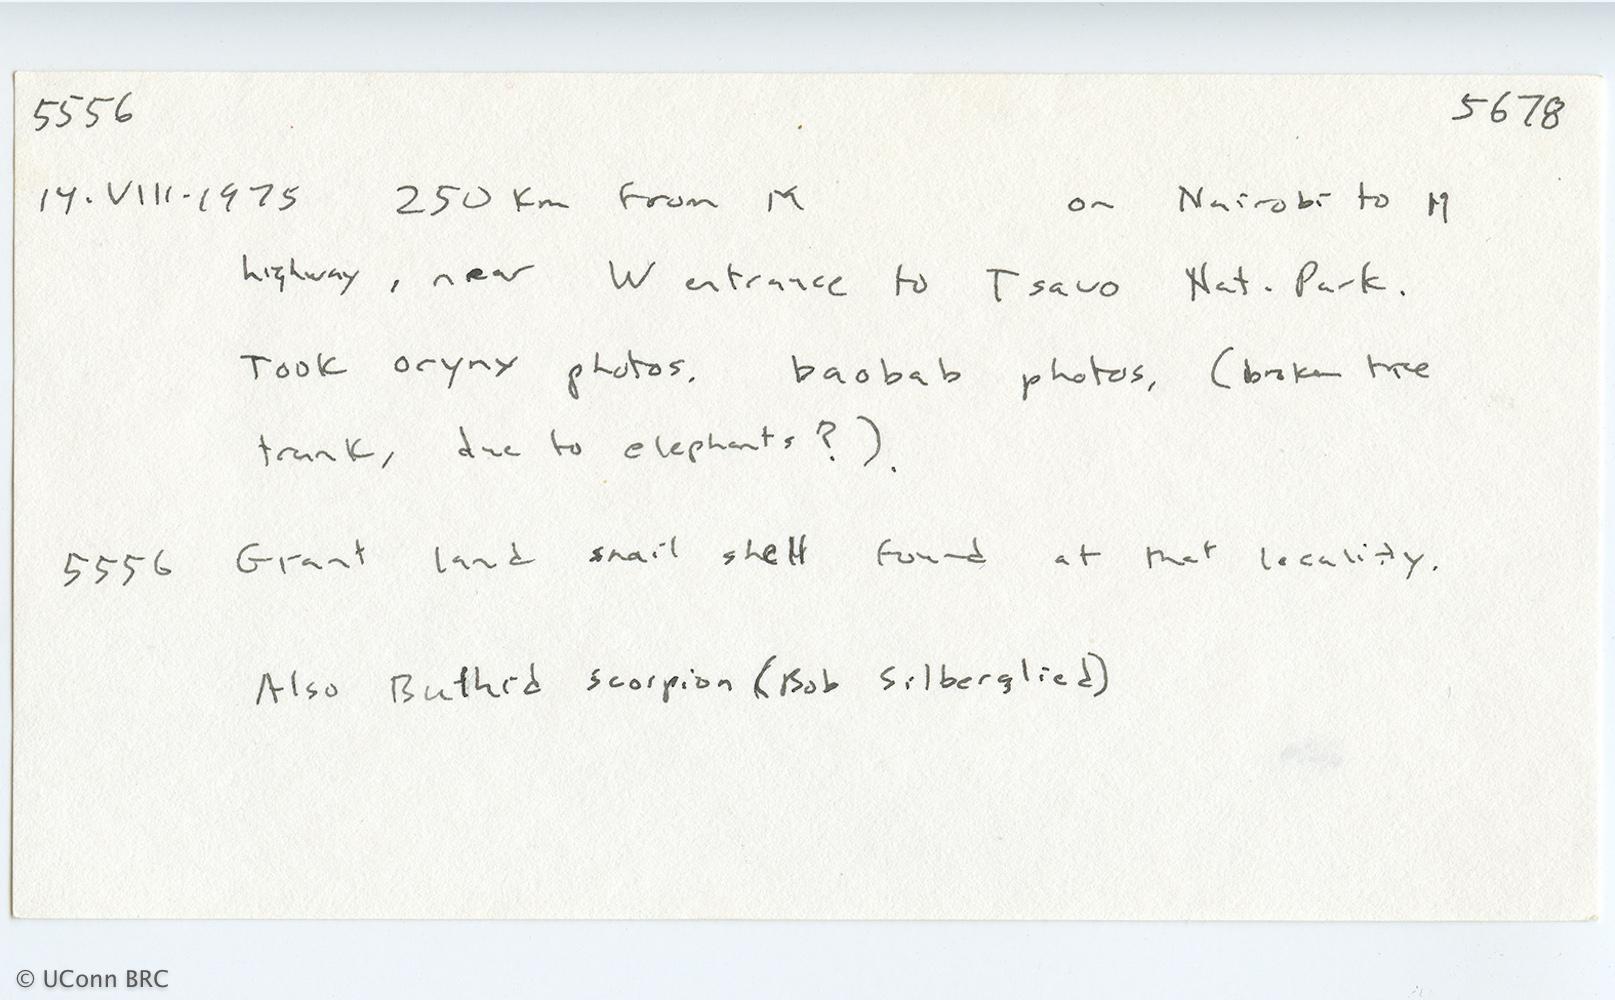 5556 5678
14.VIII.1975 250 Km from M on Nairobi to M
highway, near W entrance to Tsavo Nat. Park.
Took orynx photos. baobab photos, (broken tree
trunk, due to elephants?).
5556 Giant land snail shell found at that locality.
Also Buthid scorpion (Bob Silberglied)
© UConn BRC